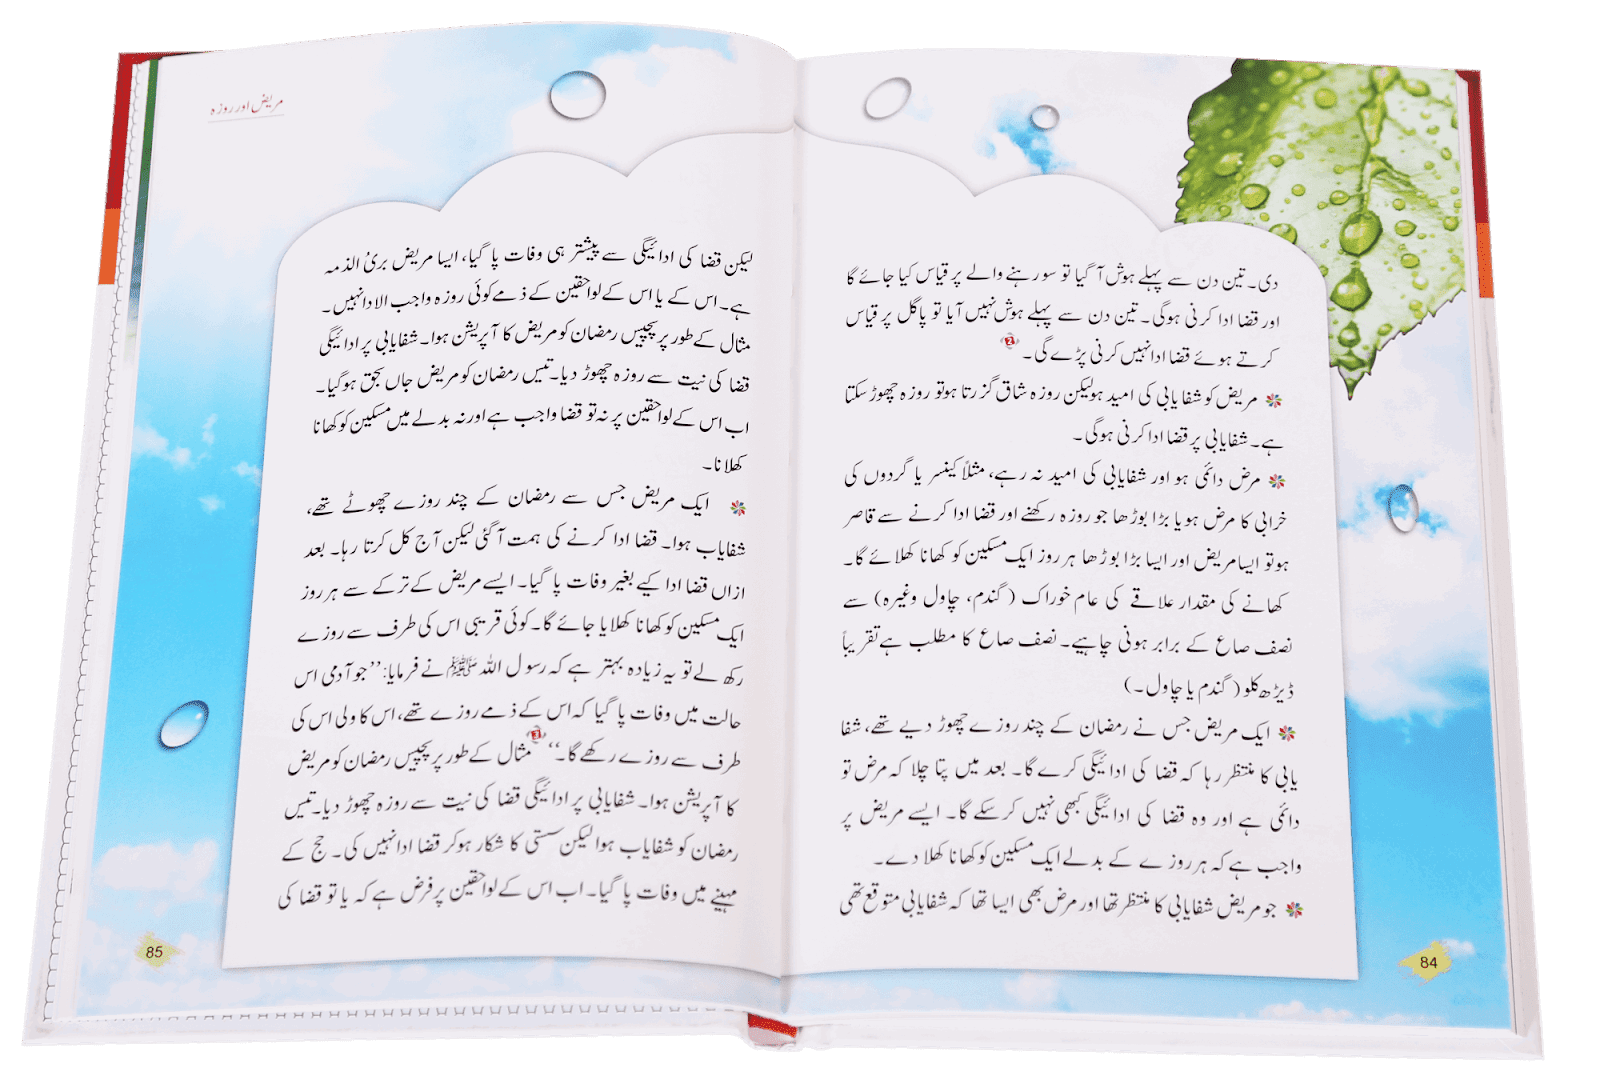 دی۔ تین دن سے پہلے ہوش آ گیا تو سو رہنے والے پر قیاس کیا جائے گا
اور قضا ادا کرنی ہوگی۔ تین دن سے پہلے ہوش نہیں آیا تو پاگل پر قیاس
کرتے ہوئے قضا ادا نہیں کرنی پڑے گی۔ 2
مریض کو شفایابی کی امید ہو لیکن روزہ شاق گزرتا ہو تو روزہ چھوڑ سکتا
ہے۔ شفایابی پر قضا ادا کرنی ہوگی۔
مرض دائمی ہو اور شفایابی کی امید نہ رہے، مثلاً کینسر یا گردوں کی
خرابی کا مرض ہو یا بڑا بوڑھا جو روزہ رکھنے اور قضا ادا کرنے سے قاصر
ہو تو ایسا مریض اور ایسا بڑا بوڑھا ہر روز ایک مسکین کو کھانا کھلائے گا۔
کھانے کی مقدار علاقے کی عام خوراک (گندم، چاول وغیرہ) سے
نصف صاع کے برابر ہونی چاہیے۔ نصف صاع کا مطلب ہے تقریباً
ڈیڑھ کلو (گندم یا چاول۔)
ایک مریض جس نے رمضان کے چند روزے چھوڑ دیے تھے، شفا
یابی کا منتظر رہا کہ قضا کی ادائیگی کرے گا۔ بعد میں پتا چلا کہ مرض تو
دائمی ہے اور وہ قضا کی ادائیگی کبھی نہیں کر سکے گا۔ ایسے مریض پر
واجب ہے کہ ہر روزے کے بدلے ایک مسکین کو کھانا کھلا دے۔
جو مریض شفایابی کا منتظر تھا اور مرض بھی ایسا تھا کہ شفایابی متوقع تھی
84
مریض اور روزہ
لیکن قضا کی ادائیگی سے پیشتر ہی وفات پا گیا، ایسا مریض بریٔ الذمہ
ہے۔ اس کے یا اس کے لواحقین کے ذمے کوئی روزہ واجب الادا نہیں۔
مثال کے طور پر پچیس رمضان کو مریض کا آپریشن ہوا۔ شفایابی پر ادائیگی
قضا کی نیت سے روزہ چھوڑ دیا۔ تیس رمضان کو مریض جاں بحق ہو گیا۔
اب اس کے لواحقین پر نہ تو قضا واجب ہے اور نہ بدلے میں مسکین کو کھانا
کھلانا۔
ایک مریض جس سے رمضان کے چند روزے چھوٹے تھے،
شفایاب ہوا۔ قضا ادا کرنے کی ہمت آ گئی لیکن آج کل کرتا رہا۔ بعد
ازاں قضا ادا کیے بغیر وفات پا گیا۔ ایسے مریض کے ترکے سے ہر روز
ایک مسکین کو کھانا کھلایا جائے گا۔ کوئی قریبی اس کی طرف سے روزے
رکھ لے تو یہ زیادہ بہتر ہے کہ رسول اللہ ﷺ نے فرمایا: ’’جو آدمی اس
حالت میں وفات پا گیا کہ اس کے ذمے روزے تھے، اس کا ولی اس کی
طرف سے روزے رکھے گا۔‘‘ 3 مثال کے طور پر پچیس رمضان کو مریض
کا آپریشن ہوا۔ شفایابی پر ادائیگی قضا کی نیت سے روزہ چھوڑ دیا۔ تیس
رمضان کو شفایاب ہوا لیکن سستی کا شکار ہو کر قضا ادا نہیں کی۔ حج کے
مہینے میں وفات پا گیا۔ اب اس کے لواحقین پر فرض ہے کہ یا تو قضا کی
85